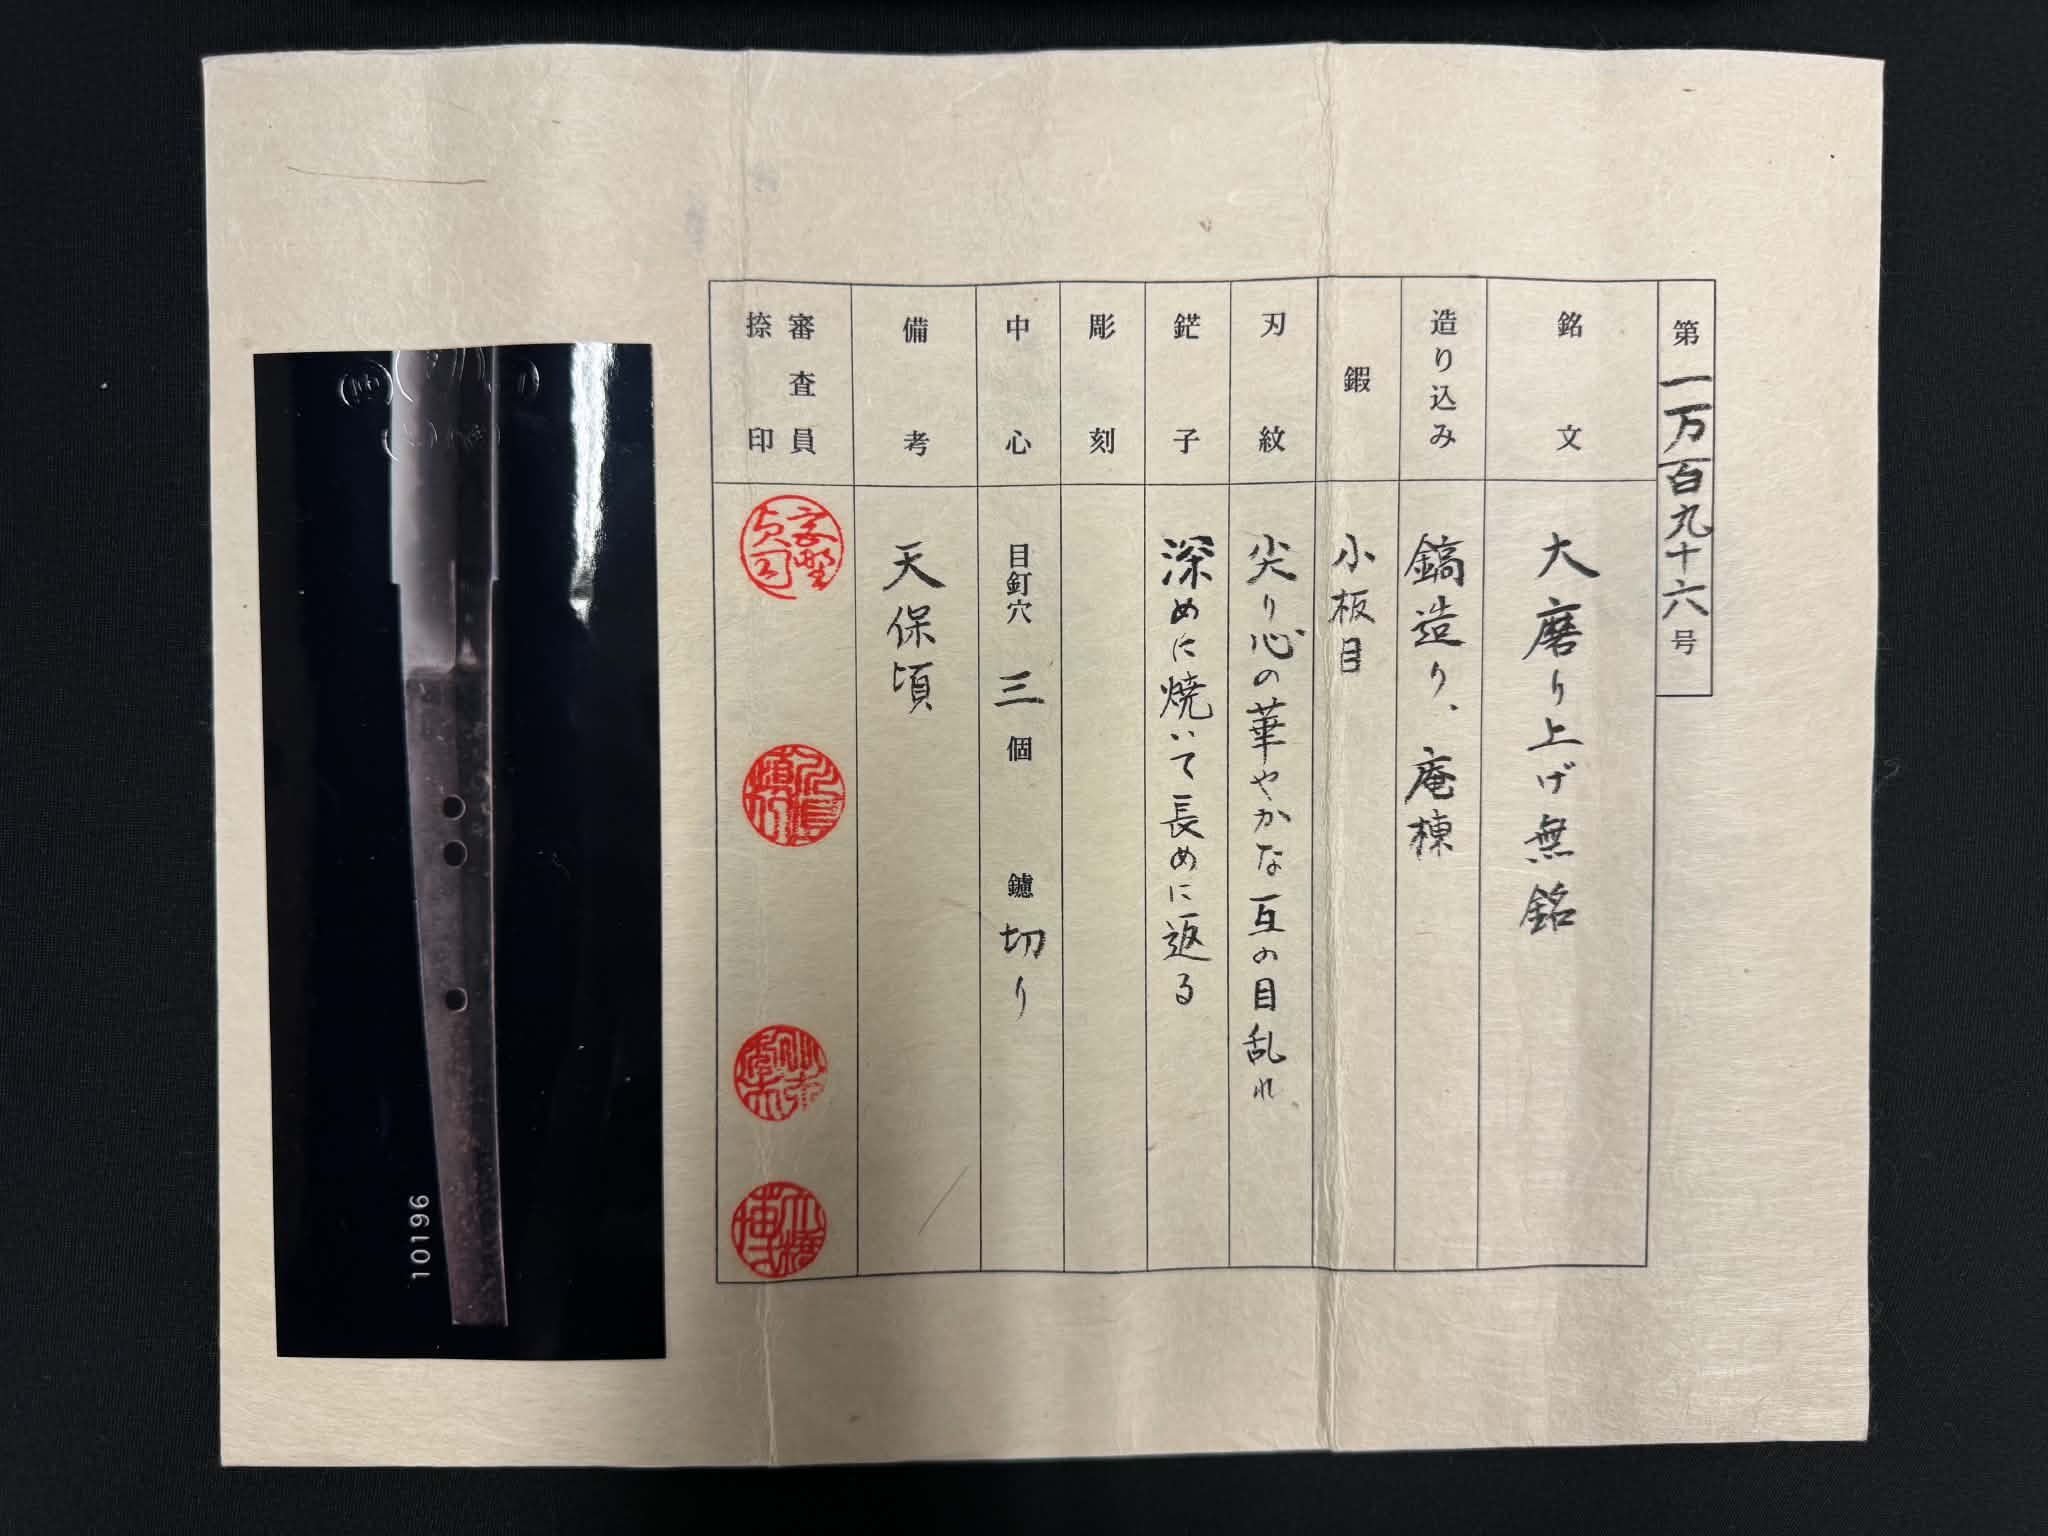 第一万百九十六号
銘文
大磨り上げ無銘
造り込み
鎬造り、庵棟
鍜
小板目
刃紋
尖り心の華やかな互の目乱れ
鋩子
深めに焼いて長めに返る
彫刻
中心
目釘穴 三個 鑢 切り
備考
天保頃
審査員
捺印
10196